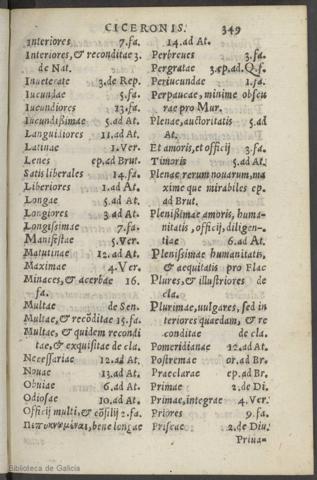 CICERONIS. 349
Interiores 7.fa.
Interiores, & reconditae 3.
de Nat.
Inueterate 3.de Rep.
Iucundae 5.fa.
Iucundiores 13.fa.
Iucundißimae 5.ad At.
Languidiores 11.ad At.
Latinae 1.Ver.
Lenes ep.ad Brut.
Satis liberales 14.fa.
Liberiores 1.ad At.
Longae 5.ad At.
Longiores 3.ad At.
Longißimae 7.fa.
Manifestae 5.Ver.
Matutinae 12.ad At.
Maximae 4.Ver.
Minaces, & acerbae 16.
fa.
Multae de Sen.
Multae, & recõditae 15.fa.
Multae, & quidem recondi
tae, & exquisitae de cla.
Necessariae 12.ad At.
Nouae 13.ad At.
Obuiae 6.ad At.
Odiosae 10.ad At.
Officij multi, & cõsilij 2.fa.
bene longae
14.ad At.
Perbreues 3.fa.
Pergratae 3.ep.ad.Q.f.
Periucundae 1.fa.
Perpaucae, minime obscu
rae pro Mur.
Plenae, auctoritatis 5.ad
At.
Et amoris, et officij 3.fa.
Timoris 5.ad At.
Plenae rerum nouarum, ma
xime que mirabiles ep.
ad Brut.
Plenißimae amoris, huma-
nitatis, officij, diligen-
tiae 6.ad At.
Plenißimae humanitatis,
& aequitatis pro Flac
Plures, & illustriores de
cla.
Plurimae, uulgares, sed in
teriores quaedam, & re
conditae de cla.
Pomeridianae 12.ad At.
Postremae or.ad Br.
Praeclarae ep.ad Br.
Primae 2.de Di.
Primae, integrae 4.Ver.
Priores 9.fa.
Priscae 2.de Diu.
Priua=
Biblioteca de Galicia